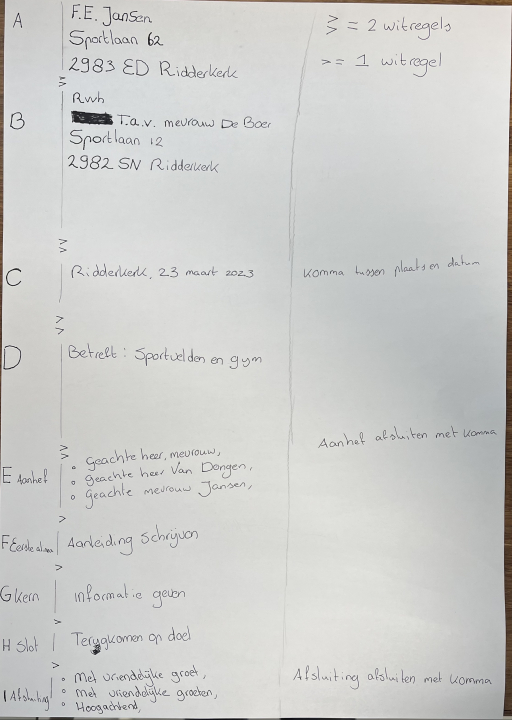 A
F.E. Jansen
Sportlaan 62
2983 ED Ridderkerk
> > = 2 witregels
> = 1 witregel
> >
B
Rwh
T.a.v. mevrouw De Boer
Sportlaan 12
2982 SN Ridderkerk
> >
C Ridderkerk, 23 maart 2023 Komma tussen plaats en datum
> >
D Betreft: Sportvelden en gym
> >
Aanhef afsluiten met komma
E Aanhef
• geachte heer, mevrouw,
• geachte heer Van Dongen,
• geachte mevrouw Jansen,
>
F Eerste Aanleiding schrijven
>
G Kern Informatie geven
>
H Slot Terugkomen op doel
>
I Afsluiting
• Met vriendelijke groet,
• Met vriendelijke groeten,
• Hoogachtend,
Afsluiting afsluiten met komma